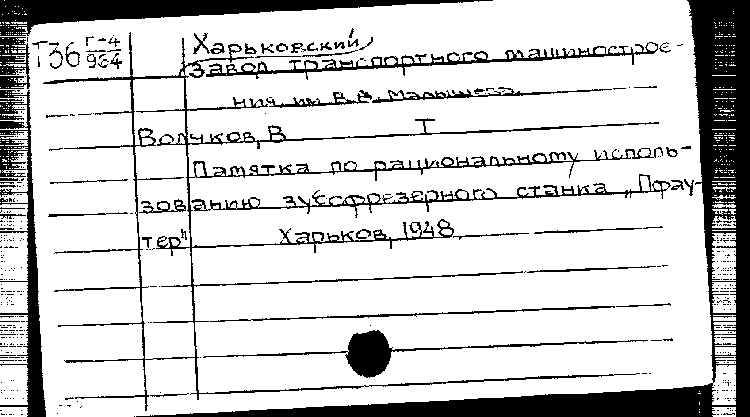 Т36 Г-4/964
Харьковский
Завод транспортного машинострое-
ния им. В. А. Малышева.
Волчков, В Т
Памятка по рациональному исполь-
зованию зубофрезерного станка „Пфау-
тер" Харьков, 1948.